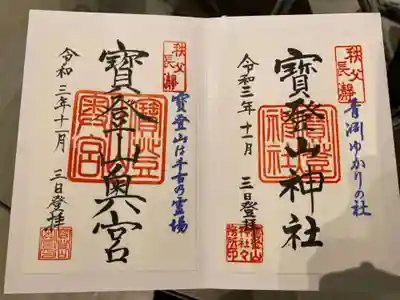 秩父
長瀞
青淵ゆかりの社
寳登山神社
令和三年十一月
三日登拝
秩父
長瀞
寳登山は千古の霊場
寳登山奥宮
令和三年十一月
三日登拝